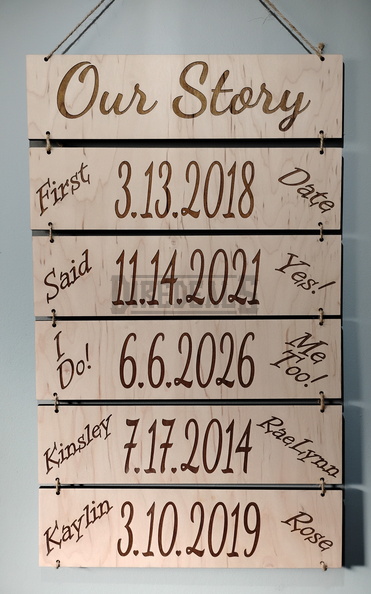 Our Story
First 3.13.2018 Date
Said 11.14.2021 Yes!
I Do! 6.6.2026 Me Too!
Kinsley 7.17.2014 RaeLynn
Kaylin 3.10.2019 Rose